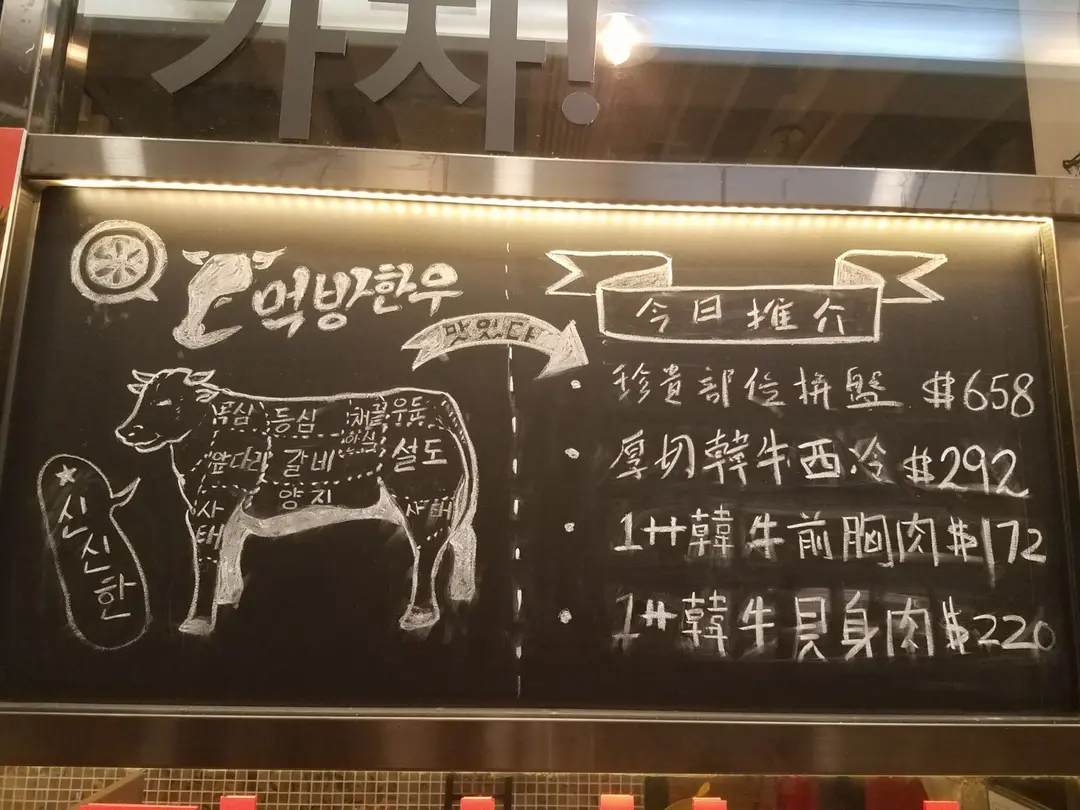 가자!
먹방한우
맛있다
목심 등심 채끝 우둔
안심
앞다리 갈비 설도
양지
사태
사태
신신한
今日推介
珍貴部位拼盤 $658
厚切韓牛西冷 $292
1++韓牛前胸肉$172
1++韓牛貝身肉$220